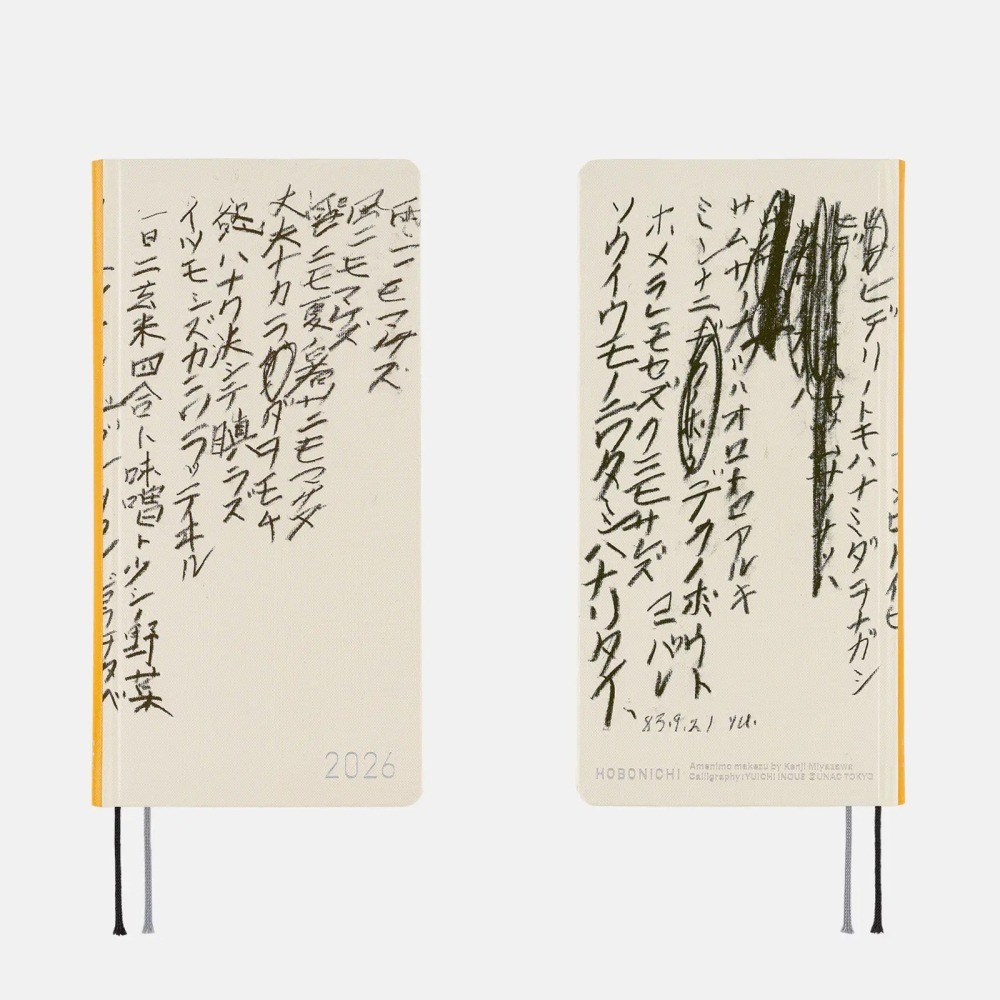 雨ニモマケズ
風ニモマケズ
雪ニモ夏ノ暑サニモマケヌ
丈夫ナカラダヲモチ
慾ハナク決シテ瞋ラズ
イツモシズカニワラッテヰル
一日ニ玄米四合ト味噌ト少シノ野菜
2026
ヒデリノトキハナミダヲナガシ
サムサノナツハオロオロアルキ
ミンナニデクノボウト
ヨバレ
ホメラレモセズクニモサレズ
ソウイウモノニワタシハナリタイ
83.9.21 YU.
HOBONICHI
Amenimo makezu by Kenji Miyazawa
Calligraphy: YUICHI INOUE ©UNAC TOKYO